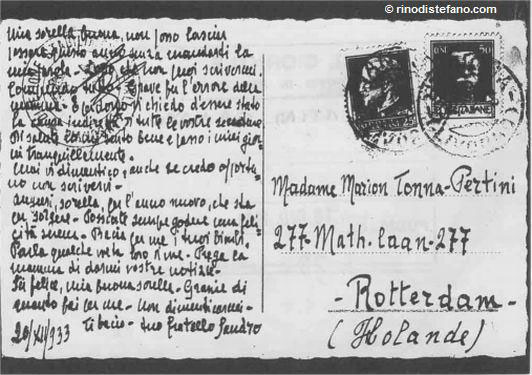 © rinodistefano.com
Mia sorella buona, non posso lasciar
senza mandarti la
che non puoi scrivermi.
tutto. grave per l'errore della
mamma. E perdono vi chiedo d'essere stato
la causa indiretta di tutte le vostre
Di salute sento bene e passo i miei gior-
ni tranquillamente.
vi dimentico, anche se credo opportu-
no non scrivervi.
Auguri, sorella, per l'anno nuovo, che sta
per sorgere. sempre godere una feli-
cità serena. Bacia per me i tuoi bimbi.
Parla qualche volta loro di me. Prega la
mamma di darmi vostre notizie.
Sii felice, mia buona sorella. Grazie di
quando fai per me. non dimenticarmi.
Ti bacio. tuo fratello Sandro
20/XII/933
50
POSTE ITALIANE
Madame Marion Tonna-Pertini
277-Math. laan-277
- Rotterdam -
(Holande)